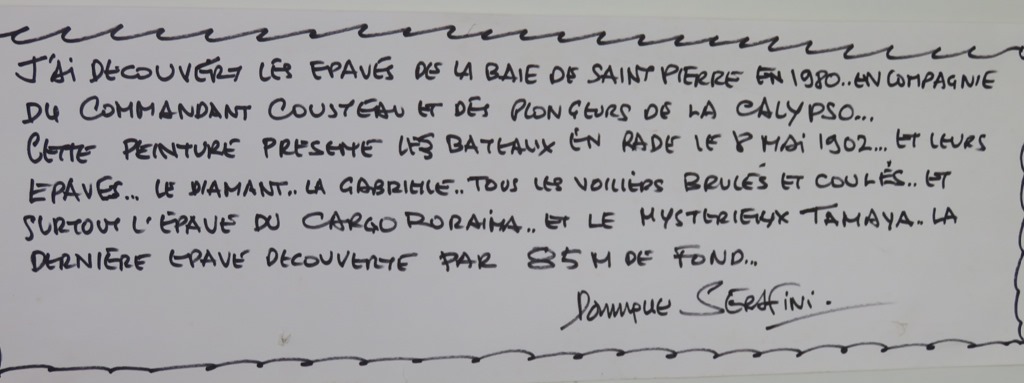 J'AI DECOUVERT LES EPAVES DE LA BAIE DE SAINT PIERRE EN 1980.. EN COMPAGNIE
DU COMMANDANT COUSTEAU ET DES PLONGEURS DE LA CALYPSO...
CETTE PEINTURE PRESENTE LES BATEAUX EN RADE LE 8 MAI 1902... ET LEURS
EPAVES... LE DIAMANT.. LA GABRIELLE.. TOUS LES VOILIERS BRULÉS ET COULÉS.. ET
SURTOUT L'ÉPAVE DU CARGO RORAIMA.. ET LE MYSTERIEUX TAMAYA.. LA
DERNIÈRE EPAVE DECOUVERTE PAR 85 M DE FOND...
Dominique SERAFINI.